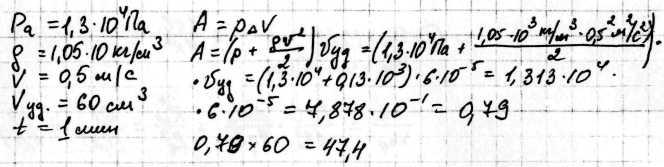 Pa = 1,3·10⁴Па
ρ = 1,05·10 кг/см³
V = 0,5 м/с
Vуд. = 60 см³
t = 1 мин
A = pΔV
A = (p + ρv²/2) Vуд = (1,3·10⁴Па + 1,05·10³ кг/м³·0,5² м²/с²/2)·
·Vуд = (1,3·10⁴ + 0,13·10³)·6·10⁻⁵ = 1,313·10⁴·
·6·10⁻⁵ = 7,878·10⁻¹ = 0,79
0,79×60 = 47,4